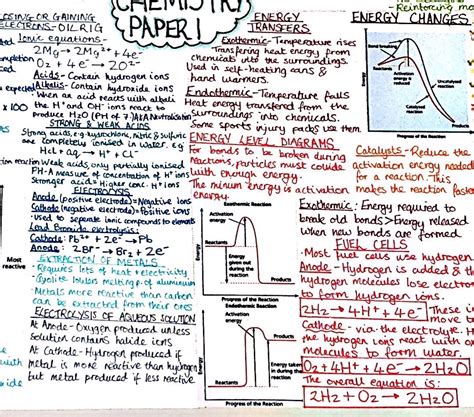 CHEMISTRY
PAPER 1
LOSING OR GAINING
ELECTRONS - OIL RIG
Ionic equations -
2Mg → 2Mg²⁺ + 4e⁻
O₂ + 4e⁻ → 2O²⁻
Acids - Contain hydrogen ions
Alkalis - Contain hydroxide ions
· When an acid reacts with alkali
x 100 the H⁺ and OH⁻ ions react to
produce H₂O (PH of 7) AKA Neutralisation
STRONG & WEAK ACIDS
Strong acids, e.g hydrochloric, nitric & sulfuric
are completely ionised in water. e.g
HCL + Aq → H⁺ + Cl⁻
Weak acids only partially ionised
PH - A measure of concentration of H⁺ ions
Stronger acid = Higher conc. H⁺ ions
ELECTROLYSIS
Anode (positive electrode) = Negative ions
Cathode (negative electrode) = Positive ions
· Used to separate ionic compounds to elements
Lead Bromide electrolysis:
Cathode: Pb²⁺ + 2e⁻ → Pb
Anode: 2Br⁻ → Br₂ + 2e⁻
Most
reactive
EXTRACTION OF METALS
· Requires lots of heat + electricity
· Cryolite lowers melting p. of aluminium
· Metals more reactive than carbon
can be extracted from their ores
ELECTROLYSIS OF AQUEOUS SOLUTION
At Anode - Oxygen produced unless
Solution contains halide ions
At Cathode - Hydrogen produced if
metal is more reactive than hydrogen
but metal produced if less reactive
ENERGY
TRANSFERS
Exothermic - Temperature rises
Transfering heat energy from
chemicals into the surroundings.
Used in self-heating cans &
hand warmers.
Endothermic - Temperature falls
Heat energy transferred from the
surroundings into chemicals.
Some sports injury packs use them
ENERGY LEVEL DIAGRAMS
For bonds to be broken during
reactions, particles must collide
with enough energy.
The minum energy is activation
energy.
Exothermic Reaction
Activation
energy
Energy
Reactants
Energy
given out
during the
reaction
Products
Progress of the Reaction
Endothermic Reaction
Activation
energy
Products
Energy
Energy taken
in during the
reaction
Reactants
Progress of the Reaction
Reinforcing
ENERGY CHANGES
Bond breaking
Energy
Reactants
Activation
energy
Catalysed
reaction
Uncatalysed
reaction
Products
Progress of the Reaction
Catalysts - Reduce the
activation energy needed
for a reaction. This
makes the reaction faster
Exothermic: Energy required to
break old bonds > Energy released
when new bonds are formed
FUEL CELLS
· Most fuel cells use hydrogen
Anode - Hydrogen is added & the
hydrogen molecules lose electrons
to form hydrogen ions.
2H₂ → 4H⁺ + 4e⁻
These
move
Cathode - via the electrolyte, H
the hydrogen ions react with
molecules to form water.
O₂ + 4H⁺ + 4e⁻ → 2H₂O
The overall equation is:
2H₂ + O₂ → 2H₂O